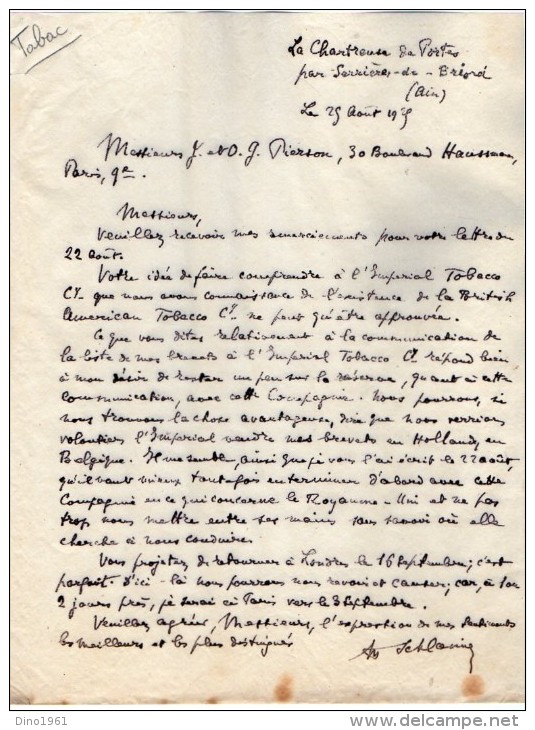 Tabac
La Chartreuse de Portes
par Serrières-de-Briord
(Ain)
Le 25 Août 19
Messieurs J. et O. G. Pierson, 30 Boulevard Haussman,
Paris, 9e.
Messieurs,
Veuillez recevoir mes remerciements pour votre lettre du
22 août.
Votre idée de faire comprendre à l'Imperial Tobacco
Cy. que nous avons connaissance de l'existence de la British
American Tobacco Cy. ne peut qu'être approuvée.
Ce que vous dites relativement à la communication de
la liste de mes brevets à l'Imperial Tobacco Cy. répond bien
à mon désir de rester un peu sur la réserve, quant à cette
communication, avec cette Compagnie. Nous pourrons, si
nous trouvons la chose avantageuse, dire que nous verrions
volontiers l'Imperial vendre mes brevets en Hollande, en
Belgique. Il me semble, ainsi que je vous l'ai écrit le 22 août,
qu'il vaut mieux toutefois en terminer d'abord avec cette
Compagnie en ce qui concerne le Royaume-Uni et ne pas
trop nous mettre entre ses mains sans savoir où elle
cherche à nous conduire.
Vous projetez de retourner à Londres le 16 septembre; c'est
parfait. D'ici-là nous pourrons nous revoir et causer; car, à 1 ou
2 jours près, je serai à Paris vers le 3 septembre.
Veuillez agréer, Messieurs, l'expression de mes sentiments
les meilleurs et les plus distingués
Schlœsing
Dino1961
delcampe.net